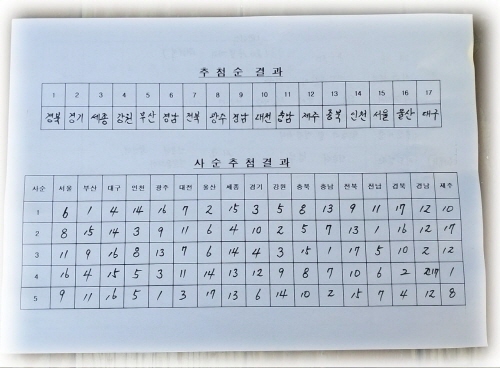 추첨순 결과
1 2 3 4 5 6 7 8 9 10 11 12 13 14 15 16 17
경북 경기 세종 강원 부산 경남 전북 광주 경남 대전 충남 제주 충북 인천 서울 울산 대구
사순추첨결과
사순 서울 부산 대구 인천 광주 대전 울산 세종 경기 강원 충북 충남 전북 전남 경북 경남 제주
1 6 1 4 14 16 7 2 15 3 5 8 13 9 11 17 12 10
2 8 15 14 3 9 11 6 4 10 2 5 7 13 1 16 12 17
3 11 9 16 8 13 7 6 14 4 3 15 1 17 5 10 2 12
4 16 4 15 5 3 11 14 13 12 9 8 7 10 6 2 17 1
5 9 11 16 5 1 3 17 13 6 14 10 2 15 7 4 12 8